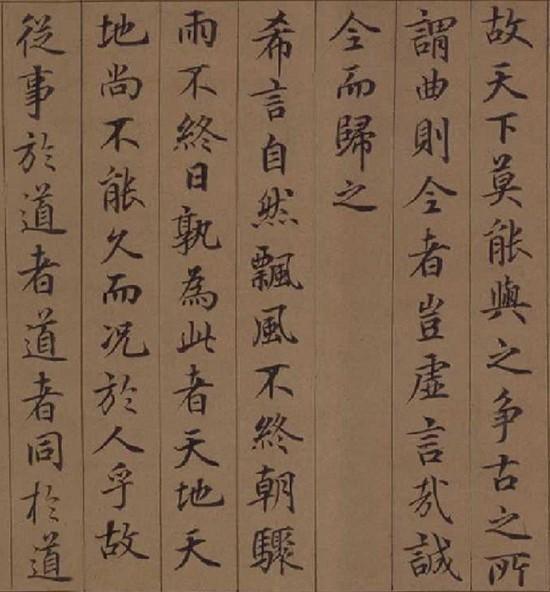 故天下莫能與之争古之所
謂曲則全者豈虛言㢤誠
全而歸之
希言自然飄風不終朝驟
雨不終日孰為此者天地天
地尚不能久而况於人乎故
從事於道者道者同於道